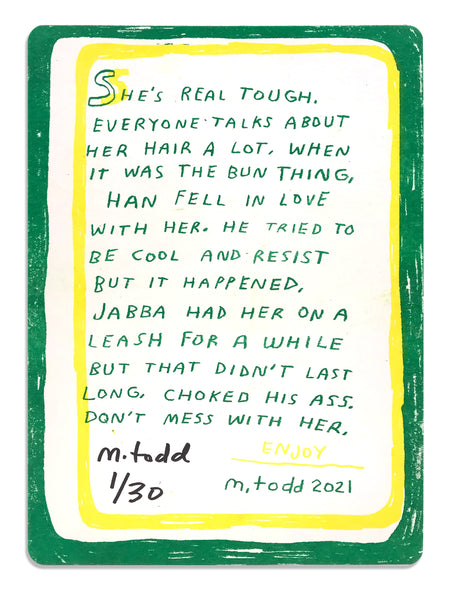 SHE'S REAL TOUGH.
EVERYONE TALKS ABOUT
HER HAIR A LOT, WHEN
IT WAS THE BUN THING,
HAN FELL IN LOVE
WITH HER. HE TRIED TO
BE COOL AND RESIST
BUT IT HAPPENED,
JABBA HAD HER ON A
LEASH FOR A WHILE
BUT THAT DIDN'T LAST
LONG, CHOKED HIS ASS.
DON'T MESS WITH HER.
m.todd
1/30
ENJOY
m.todd 2021